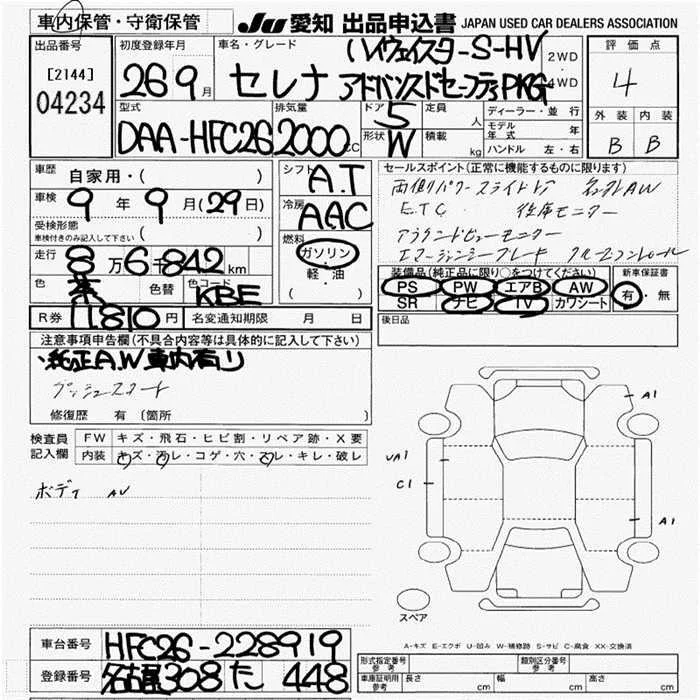 車内保管・守衛保管
JU 愛知 出品申込書 JAPAN USED CAR DEALERS ASSOCIATION
出品番号
[2144]
04234
初度登録年月
26 9月
車名・グレード
ハイウェイスターS-HV
セレナ アドバンスドセーフティPKG
2WD
・
4WD
評価点
4
外装 内装
B B
型式
DAA-HFC26
排気量
2000cc
ドア 5
形状 W
定員 人
積載 kg
ディーラー・並行
モデル年式 年
ハンドル 左・右
車歴 自家用・( )
車検 9年9月(29日)
受検形態
車検付きのみ記入して下さい ( )
走行 8万6千842km
色 茶 色替 色コード KBE
シフト
A.T
冷房
AAC
燃料
ガソリン
・
軽・油
( )
セールスポイント(正常に機能するものに限ります)
両側パワースライドドア 名外AW
ETC 後席モニター
アラウンドビューモニター
エマージェンシーブレーキ クルーズコントロール
装備品(純正品に限り○をつけてください)
PS PW エアB AW
SR ナビ TV カワシート
新車保証書
有・無
R券 11,810円 名変通知期限 月 日
後日品
注意事項申告欄(不具合内容等は具体的に記入して下さい)
・純正A.W車内有り
プッシュスタート
修復歴 有 〔箇所 〕
検査員記入欄
FW キズ・飛石・ヒビ割・リペア跡・X要
内装 キズ・汚レ・コゲ・穴・スレ・キレ・破レ
ボディ AU
A1
UA1
C1
A1
スペア
A-キズ E-エクボ U-凹み W-補修跡 S-サビ C-腐食 XX-交換済
車台番号 HFC26-228919
登録番号 名古屋308 た 448
形式指定番号 参考
類別区分番号 参考
車庫証明用 参考 長さ cm 幅 cm 高さ cm